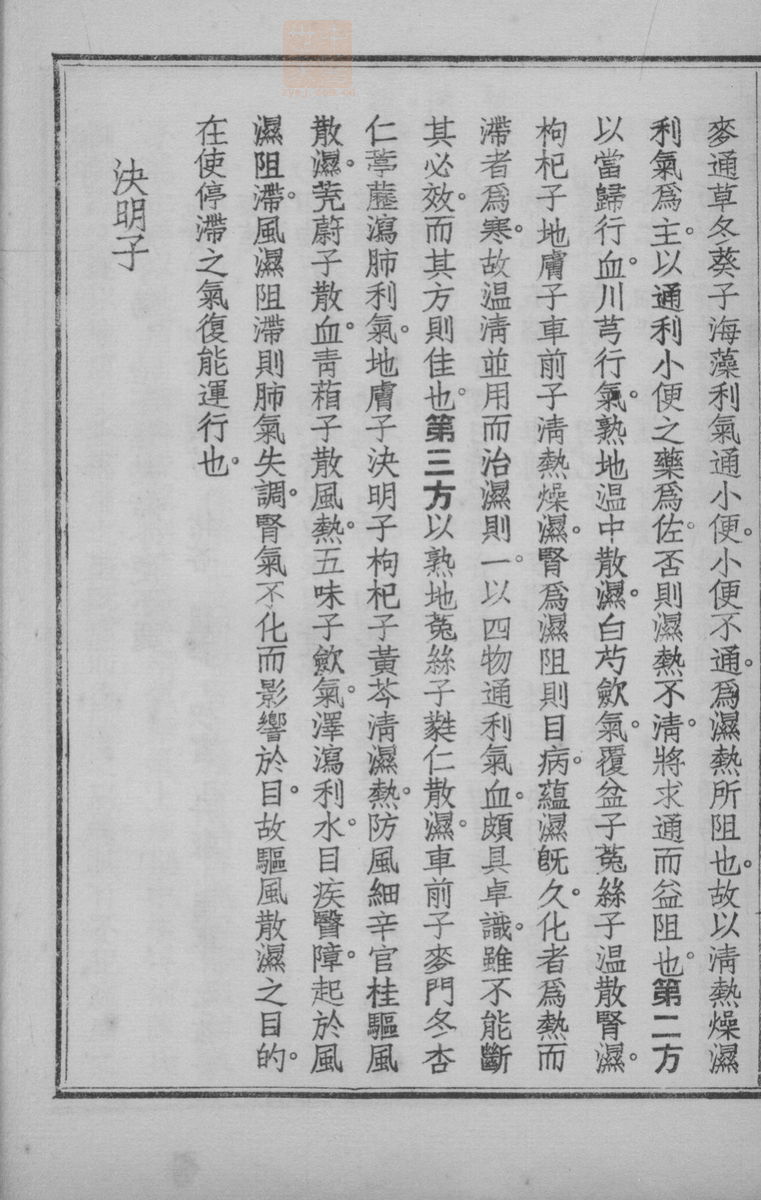 麥通草冬葵子海藻利氣通小便。小便不通。爲濕熱所阻也。故以淸熱燥濕
利氣爲主。以通利小便之藥爲佐。否則濕熱不淸。將求通而益阻也。第二方
以當歸行血。川芎行氣。熟地温中散濕。白芍歛氣。覆盆子菟絲子温散腎濕。
枸杞子地膚子車前子淸熱燥濕。腎爲濕阻則目病。蘊濕旣久。化者爲熱而
滯者爲寒。故温淸並用而治濕則。一以四物通利氣血。頗具卓識。雖不能斷
其必效。而其方則佳也。第三方以熟地菟絲子蕤仁散濕。車前子麥門冬杏
仁葶藶瀉肺利氣。地膚子決明子枸杞子黃芩淸濕熱。防風細辛官桂驅風
散濕。茺蔚子散血。靑葙子散風熱。五味子歛氣。澤瀉利水。目疾醫障。起於風
濕阻滯。風濕阻滯則肺氣失調。腎氣不化而影響於目。故驅風散濕之目的。
在使停滯之氣復能運行也。
決明子